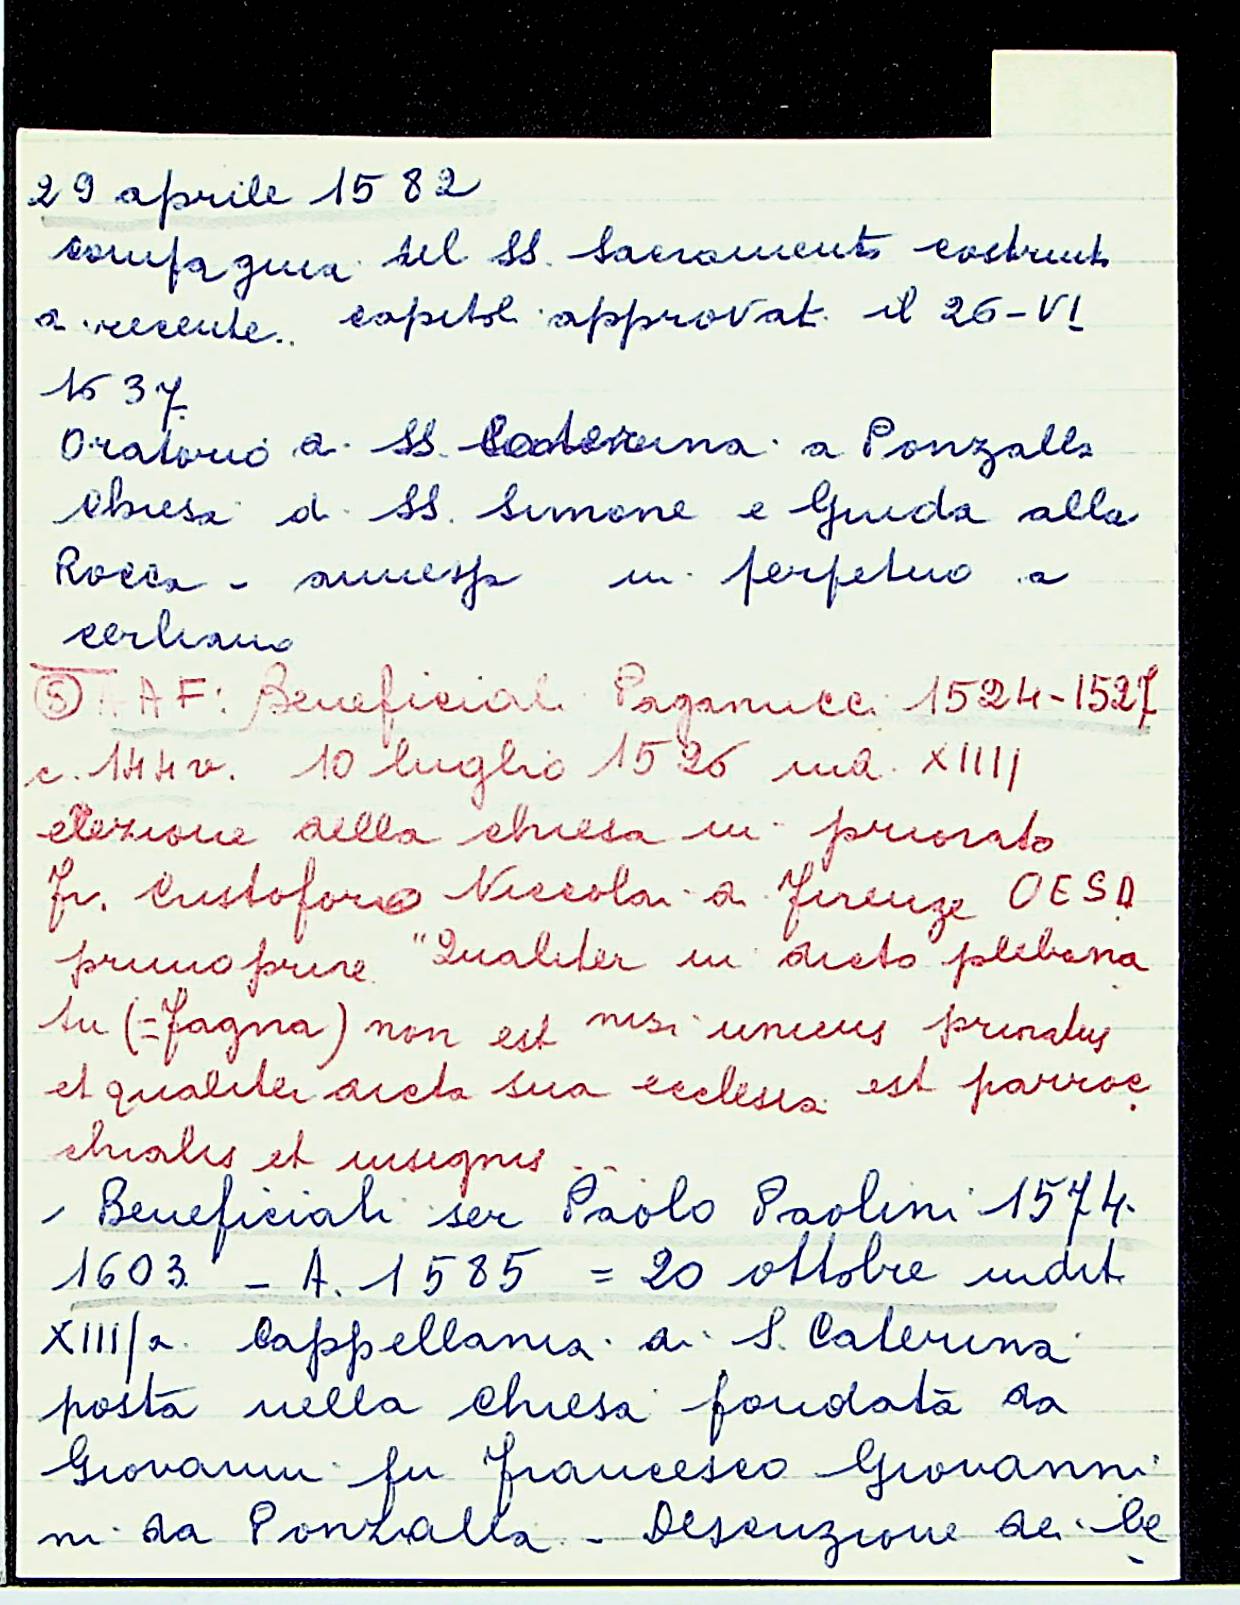 29 aprile 1582
compagnia del SS. Sacramento costruit
a recente. capitol approvat. il 26-VI
1637.
Oratorio di SS. Caterina a Ponzalla
chiesa di SS. Simone e Giuda alla
Rocca - annessa in perpetuo a
cerliano
(5) AAF: Beneficiali Paganucci 1524-1527
c. 144v. 10 luglio 1526 ind. XIIIJ
elezione della chiesa in priorato
Fr. Cristoforo Niccolai di Firenze OESA
primo priore "Qualiter in dicto plebana
tu (=Fagna) non est nisi unicus prioratus
et qualiter dicta sua ecclesia est parroc
chialis et insignis ...
Beneficiali ser Paolo Paolini 1574-
1603 - A. 1585 = 20 ottobre indit
XIII/a Cappellania di S. Caterina
posta nella chiesa fondata da
Giovanni fu Francesco Giovanni
ni da Ponzalla - Descrizione dei be